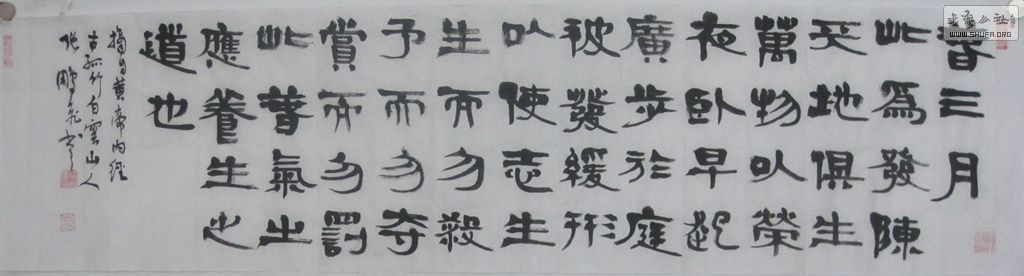 春三月
此為發陳
天地俱生
萬物以榮
夜卧早起
廣步於庭
被發緩形
以使志生
生而勿殺
予而勿夺
賞而勿罰
此春氣之
應養生之
道也
摘自黄帝内經
古孤竹白雲山人
书法公社
WWW.SHUFA.ORG